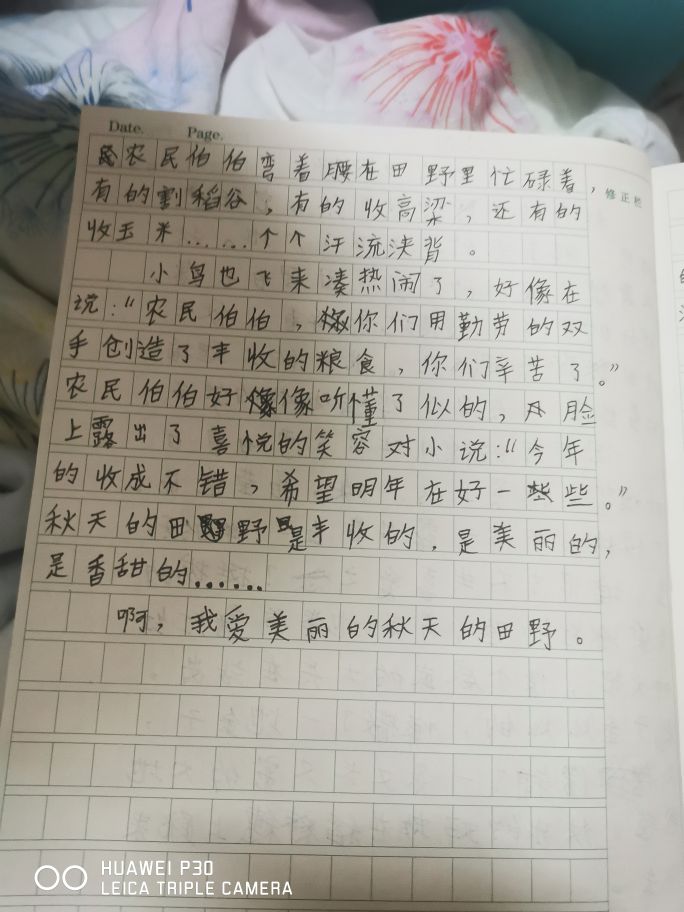 Date. Page.
农民伯伯弯着腰在田野里忙碌着，
修正栏
有的割稻谷，有的收高梁，还有的
收玉米……个个汗流浃背。
小鸟也飞来凑热闹了，好像在
说：“农民伯伯，你们用勤劳的双
手创造了丰收的粮食，你们辛苦了。”
农民伯伯好像听懂了似的，脸
上露出了喜悦的笑容对小说：“今年
的收成不错，希望明年在好一些。”
秋天的田野是丰收的，是美丽的，
是香甜的……
啊，我爱美丽的秋天的田野。
HUAWEI P30
LEICA TRIPLE CAMERA